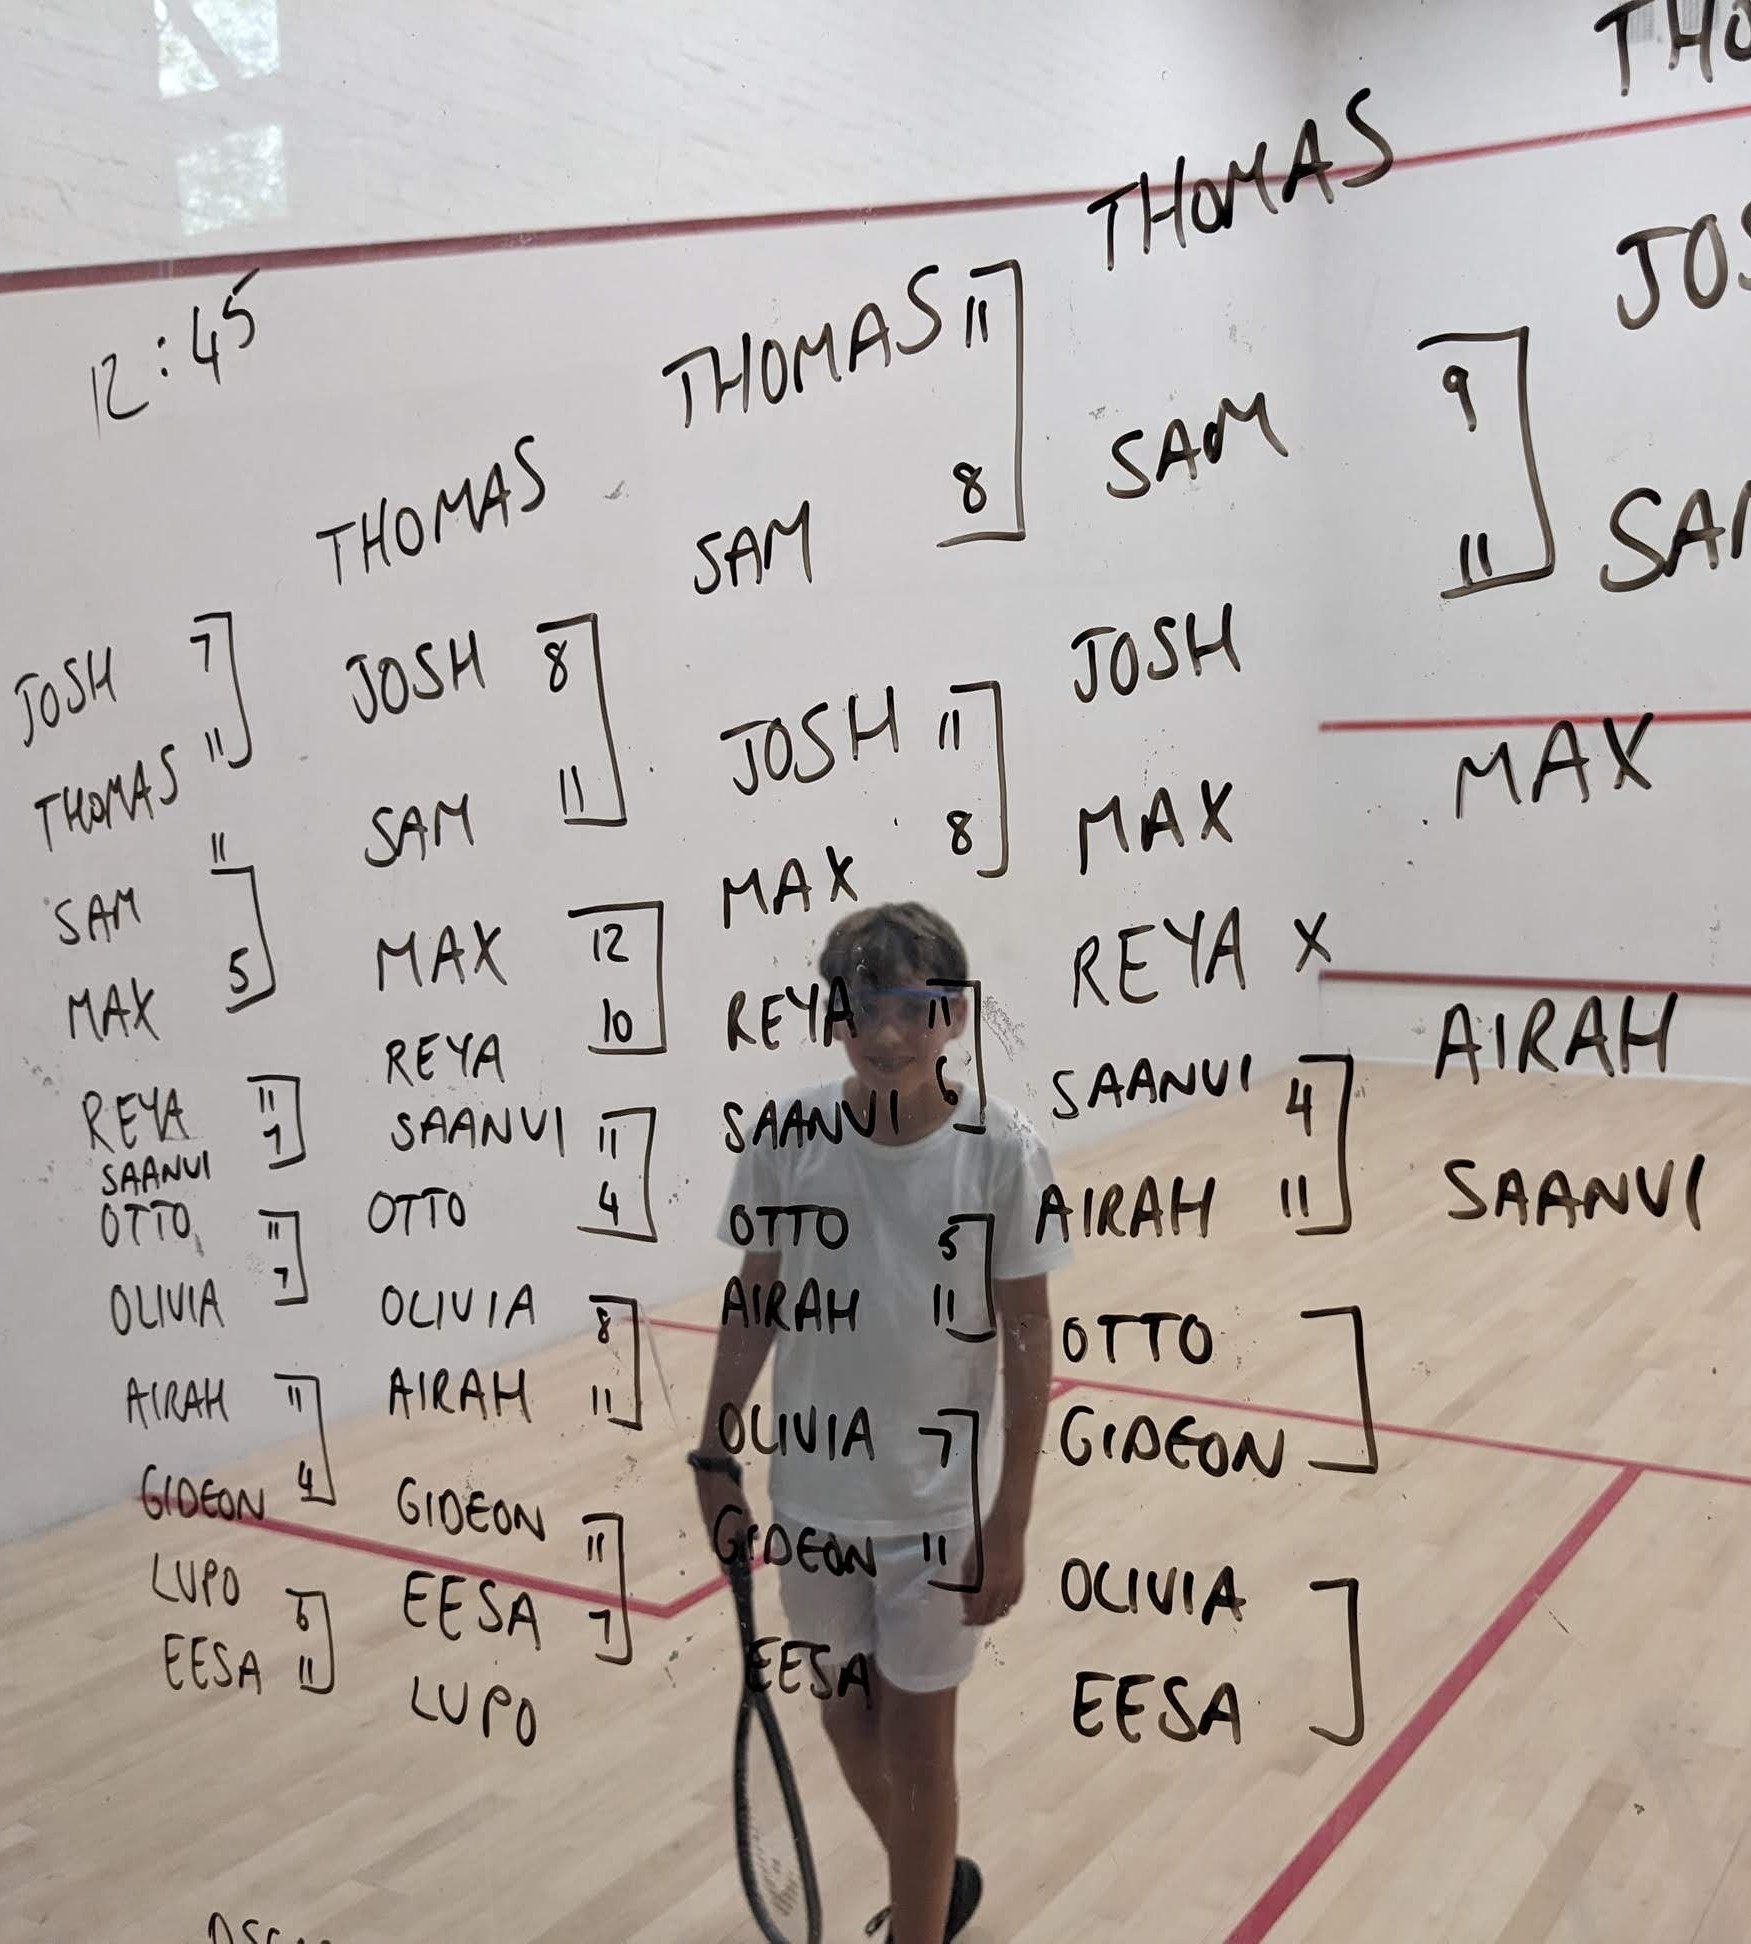 12:45
JOSH 7
THOMAS 11
SAM 11
MAX 5
REYA 11
SAANVI 7
OTTO 11
OLIVIA 7
AIRAH 11
GIDEON 4
LUPO
EESA 11
THOMAS
JOSH 8
SAM 11
MAX 12
REYA 10
SAANVI 11
OTTO 4
OLIVIA 8
AIRAH 11
GIDEON 11
EESA 7
LUPO
THOMAS 11
SAM 8
JOSH 11
MAX 8
REYA 11
SAANVI 6
OTTO 5
AIRAH 11
OLIVIA 7
GIDEON 11
EESA
THOMAS
SAM 9
JOSH 11
MAX
REYA X
SAANVI 4
AIRAH 11
OTTO
GIDEON
OLIVIA
EESA
MAX
AIRAH
SAANVI